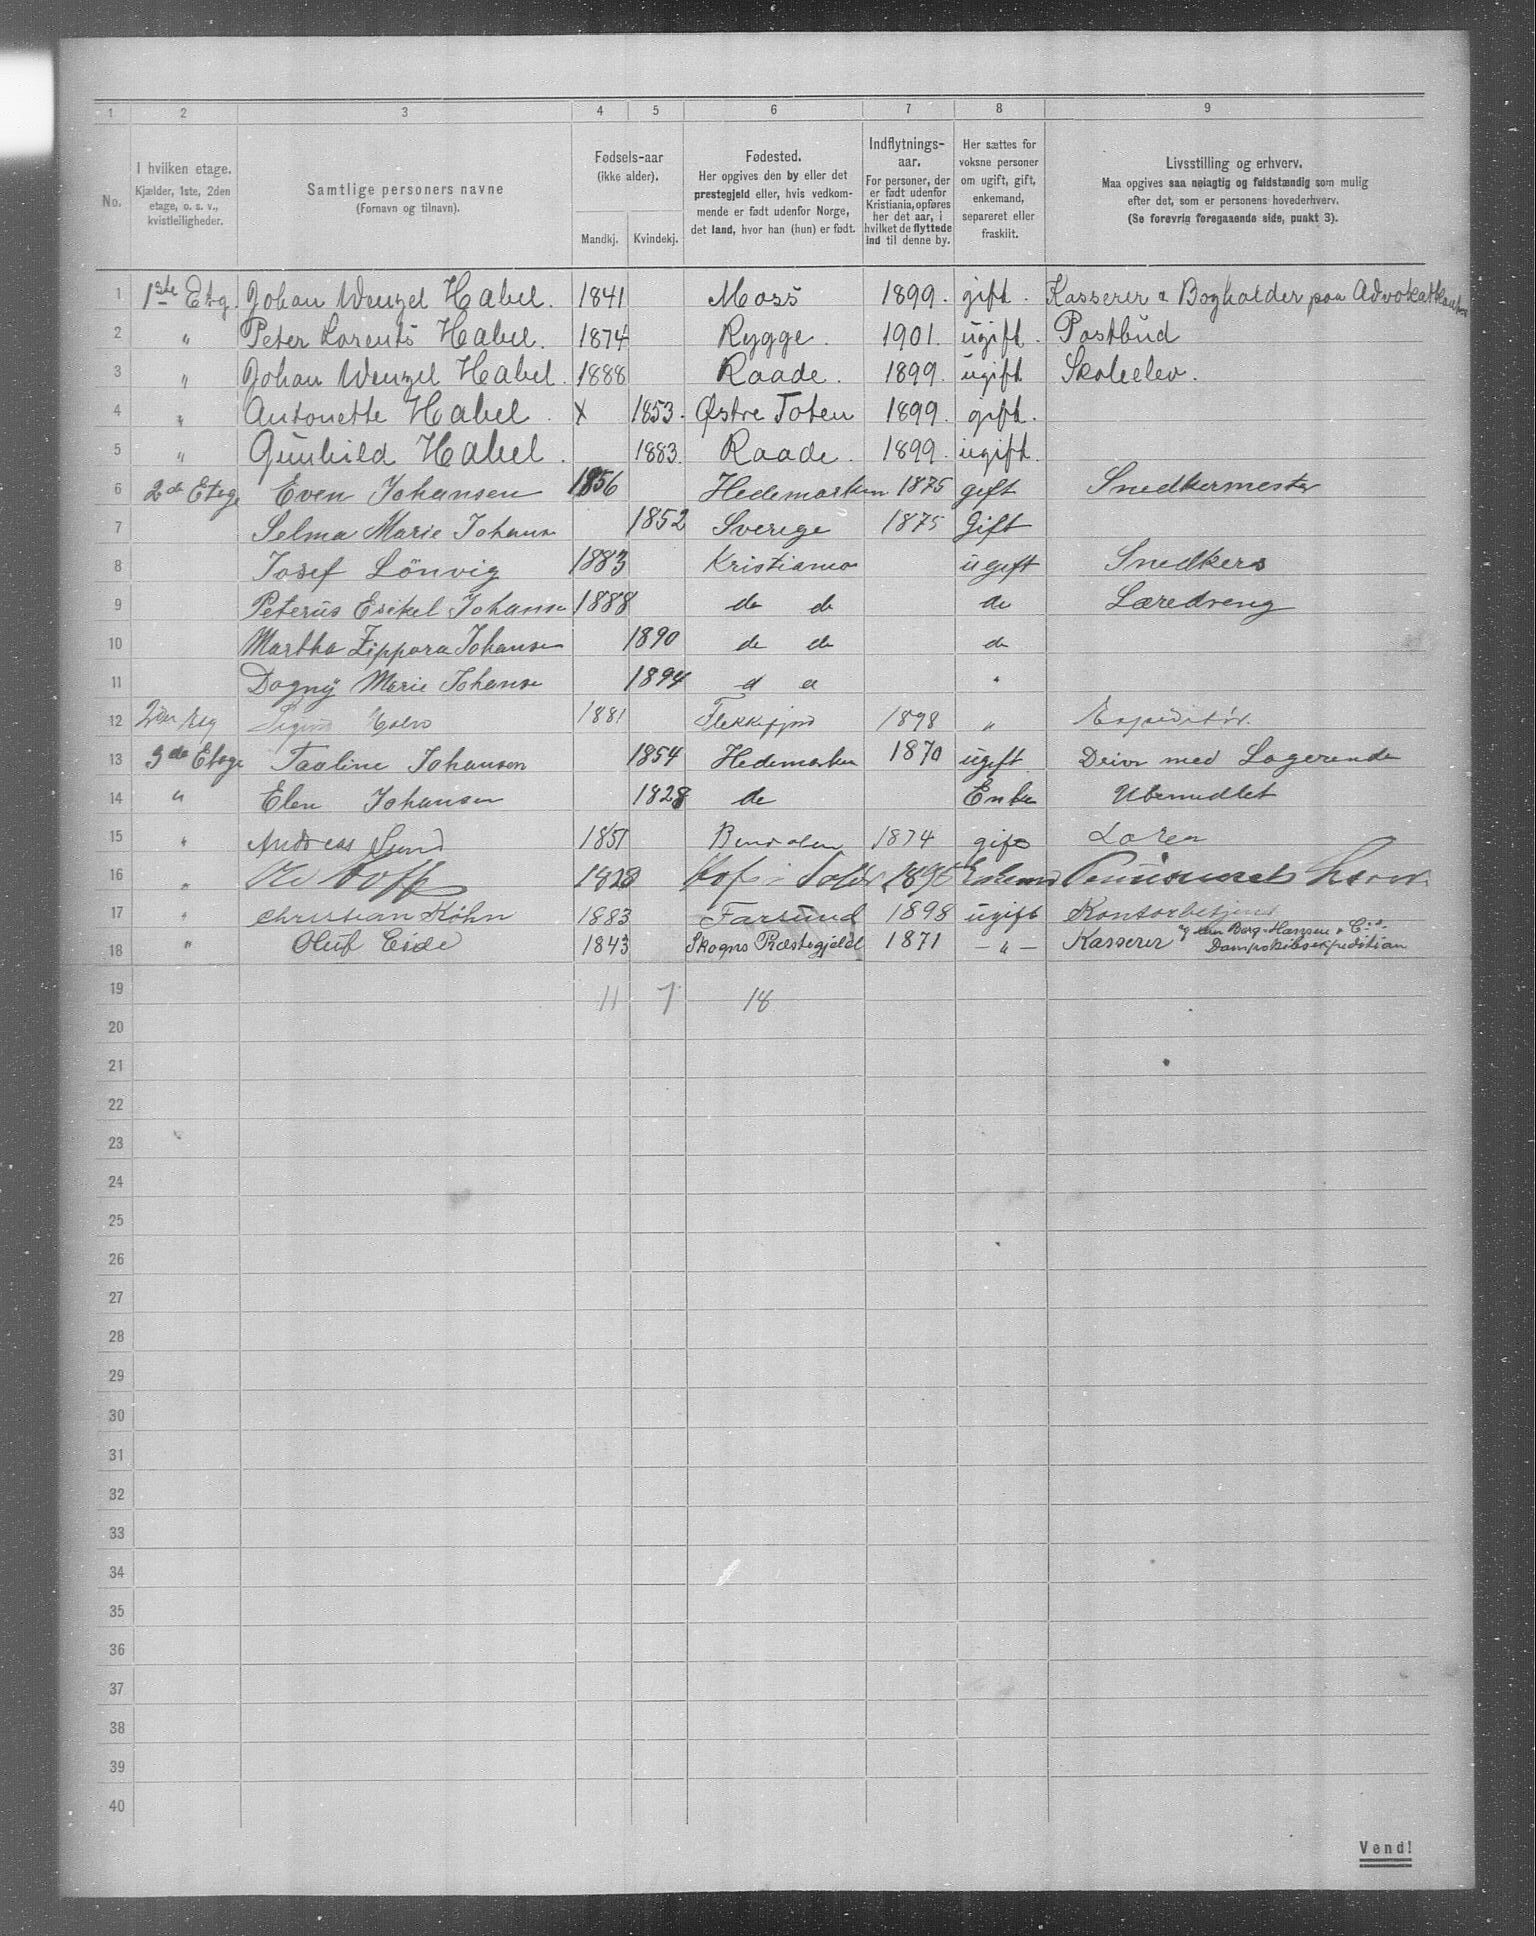 1 2 3 4 5 6 7 8 9
No.
I hvilken etage.
Kjælder, 1ste, 2den
etage, o. s. v.,
kvistleiligheder.
Samtlige personers navne
(Fornavn og tilnavn).
Fødsels-aar
(ikke alder).
Mandkj. Kvindekj.
Fødested.
Her opgives den by eller det
prestegjeld eller, hvis vedkom-
mende er født udenfor Norge,
det land, hvor han (hun) er født.
Indflytnings-
aar.
For personer, der
er født udenfor
Kristiania, opføres
her det aar, i
hvilket de flyttede
ind til denne by.
Her sættes for
voksne personer
om ugift, gift,
enkemand,
separeret eller
fraskilt.
Livsstilling og erhverv.
Maa opgives saa nøiagtig og fuldstændig som mulig
efter det, som er personens hovederhverv.
(Se forøvrig foregaaende side, punkt 3).
1 1ste Etg. Johan Wenzel Habel. 1841 Moss 1899. gift. Kasserer & Bogholder paa Advokatkontor
2 " Peter Lorents Habel. 1874 Rygge. 1901. ugift. Postbud
3 " Johan Wenzel Habel. 1888 Raade. 1899. ugift Skoleelev.
4 " Antonette Habel. X 1853. Østre Toten 1899. gift.
5 " Gunhild Habel. 1883. Raade. 1899. ugift.
6 2de Etage Even Johansen 1856 Hedemarken 1875 gift Snedkermester
7 Selma Marie Johans 1852 Sverige 1875 Gift
8 Josef Lönvig 1883 Kristiania ugift Snedkers
9 Peterus Esikel Johanse 1888 de de de Læredreng
10 Martha Zippora Johanse 1890 de de de
11 Dagny Marie Johanse 1894 d d "
12 2den Etg 1881 Flekkefjord 1898 " Expeditør.
13 3de Etage Pauline Johansen 1854 Hedemarken 1870 ugift Driver med Logerende
14 " Elen Johansen 1828 de Enke Ubemidlet
15 " Andreas Sund 1851 1874 gift
16 " 1828 Hof i Solør
17 " Christian Köhn 1883 Farsund 1898 ugift Kontorbetjent
18 " Oluf Eide 1843 Skogns Præstegjeld 1871 – " – Kasserer Berg-Hansen & Cos. Dampskibsexpedition
19 11 7 18
20
21
22
23
24
25
26
27
28
29
30
31
32
33
34
35
36
37
38
39
40
Vend!